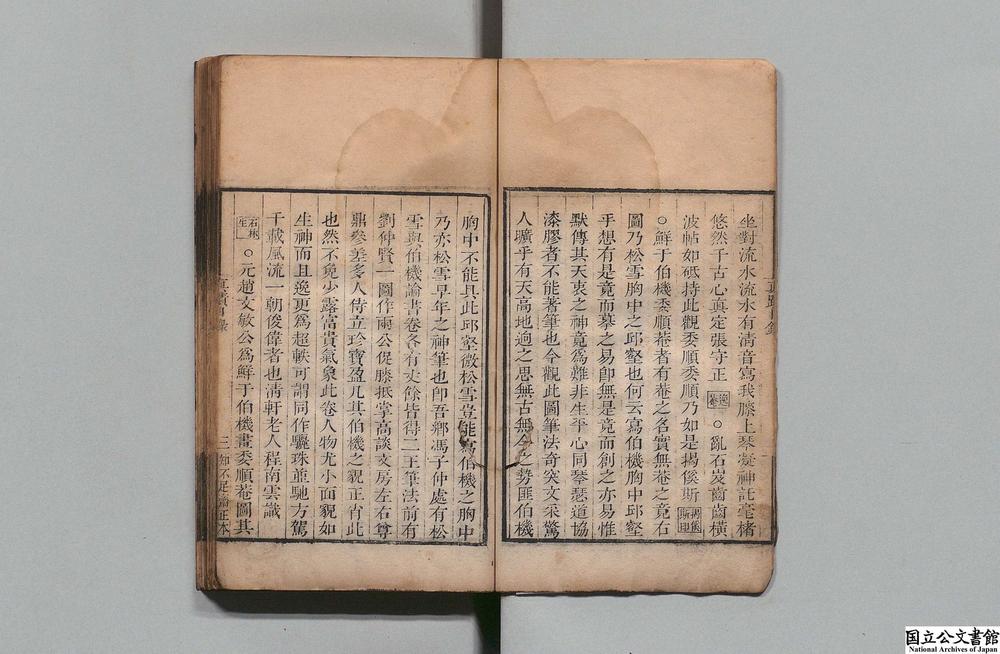 坐對流水流水有清音寫我膝上琴凝神託毫楮
悠然千古心眞定張守正 ○亂石岌齒齒橫
波帖如砥持此觀委順委順乃如是揭傒斯
○鮮于伯機委順菴者有菴之名實無菴之竟右
圖乃松雪胸中之邱壑也何云寫伯機胸中邱壑
乎想有是竟而摹之易卽無是竟而創之亦易惟
默傳其天衷之神竟爲難非生平心同琴瑟道協
漆膠者不能著筆也今觀此圖筆法奇突文采驚
人曠乎有天高地逈之思無古無今之勢匪伯機
胸中不能具此邱壑微松雪豈能寫伯機之胸中
乃亦松雪早年之神筆也卽吾鄉馮子仲處有松
雪與伯機論書卷各有丈餘皆得二王筆法前有
劉仲賢一圖作兩公促膝抵掌高談文房左右尊
鼎參差多人侍立珍寶盈几其伯機之貌正肖此
也然不免少露富貴氣象此卷人物尤小面貌如
生神而且逸更爲超軼可謂同作驪珠並馳方駕
千載風流一朝俊偉者也淸軒老人程南雲識
○元趙文敏公爲鮮于伯機畫委順菴圖其
眞蹟日錄
三 知不足齋正本
国立公文書館
National Archives of Japan